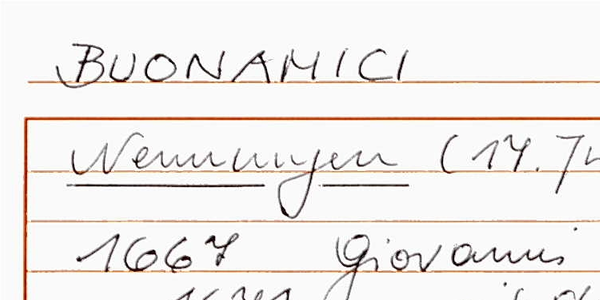 BUONAMICI
Nenningen (17.
1667 Giovanni